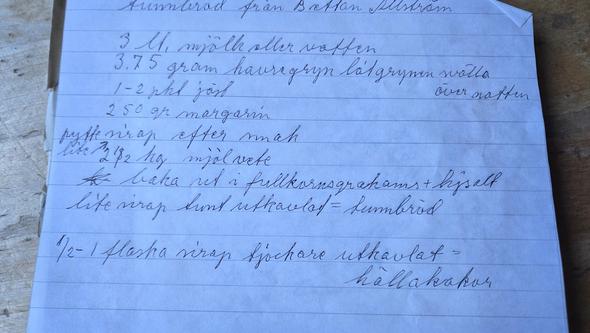 tunnbröd från Bettan Allström
3 lit. mjölk eller vatten
3.75 gram havregryn låt grynen svälla
över natten
1-2 pkt jäst
250 gr margarin
pytte sirap efter smak
lite
2 1/2 kg mjöl vete
baka ut i fullkornsgrahams +
lite sirap tunt utkavlad = tunnbröd
1/2-1 flaska sirap tjockare utkavlat =
hällakakor